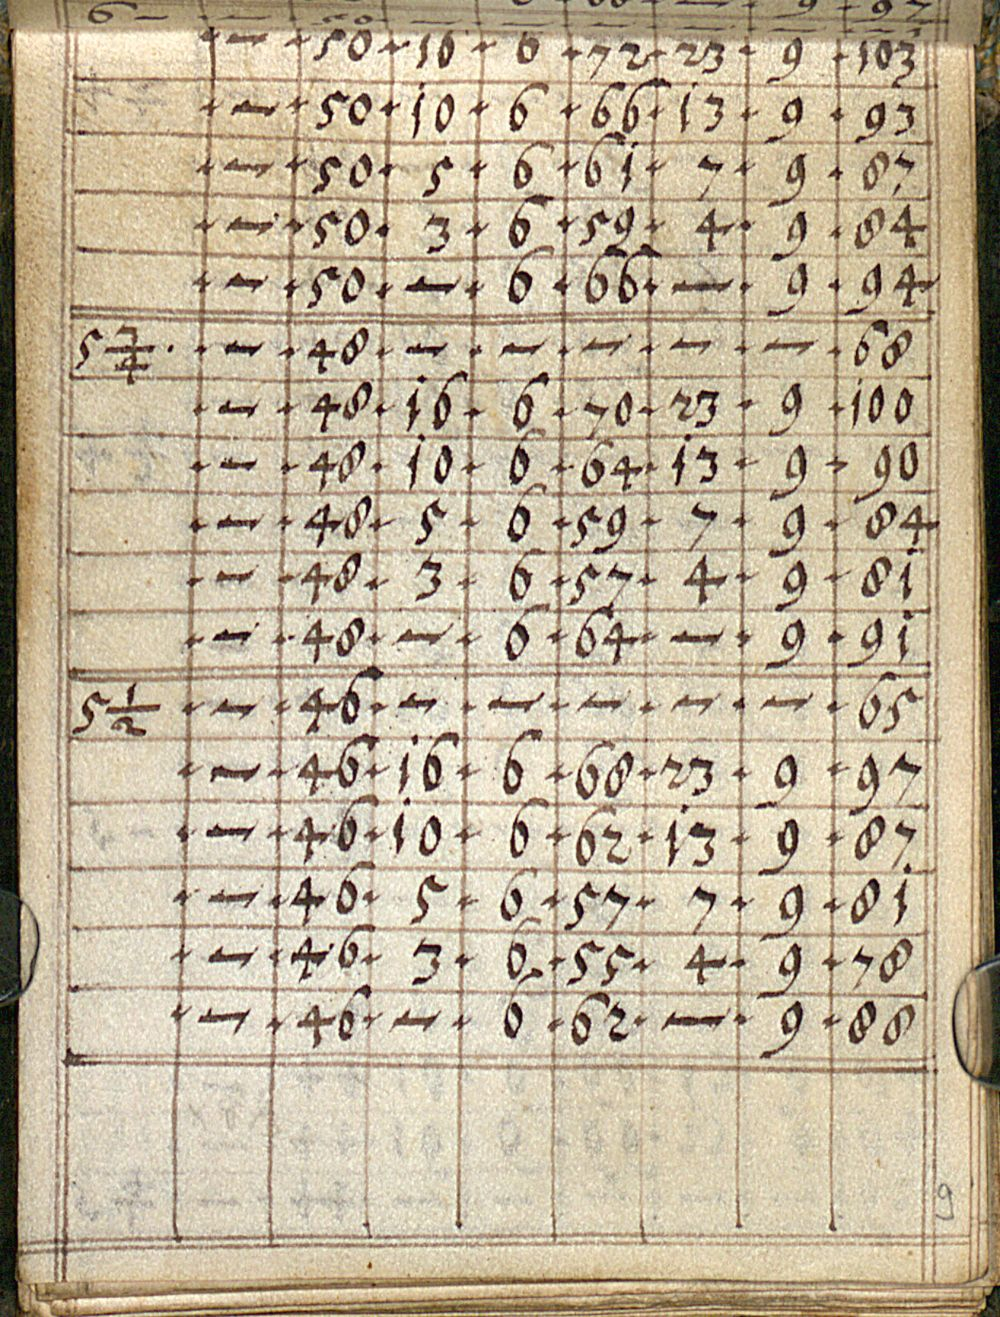 6 - 9 · 97
· — · 50 · 16 · 6 · 72 · 23 · 9 · 103
· — · 50 · 10 · 6 · 66 · 13 · 9 · 93
· — · 50 · 5 · 6 · 61 · 7 · 9 · 87
· — · 50 · 3 · 6 · 59 · 4 · 9 · 84
· — · 50 · — · 6 · 66 · — · 9 · 94
5 3/4 · · — · 48 · — · — · — · — · — · 68
· — · 48 · 16 · 6 · 70 · 23 · 9 · 100
· — · 48 · 10 · 6 · 64 · 13 · 9 · 90
· — · 48 · 5 · 6 · 59 · 7 · 9 · 84
· — · 48 · 3 · 6 · 57 · 4 · 9 · 81
· — · 48 · — · 6 · 64 · — · 9 · 91
5 1/2 · — · 46 · — · — · — · — · — · 65
· — · 46 · 16 · 6 · 68 · 23 · 9 · 97
· — · 46 · 10 · 6 · 62 · 13 · 9 · 87
· — · 46 · 5 · 6 · 57 · 7 · 9 · 81
· — · 46 · 3 · 6 · 55 · 4 · 9 · 78
· — · 46 · — · 6 · 62 · — · 9 · 88
9